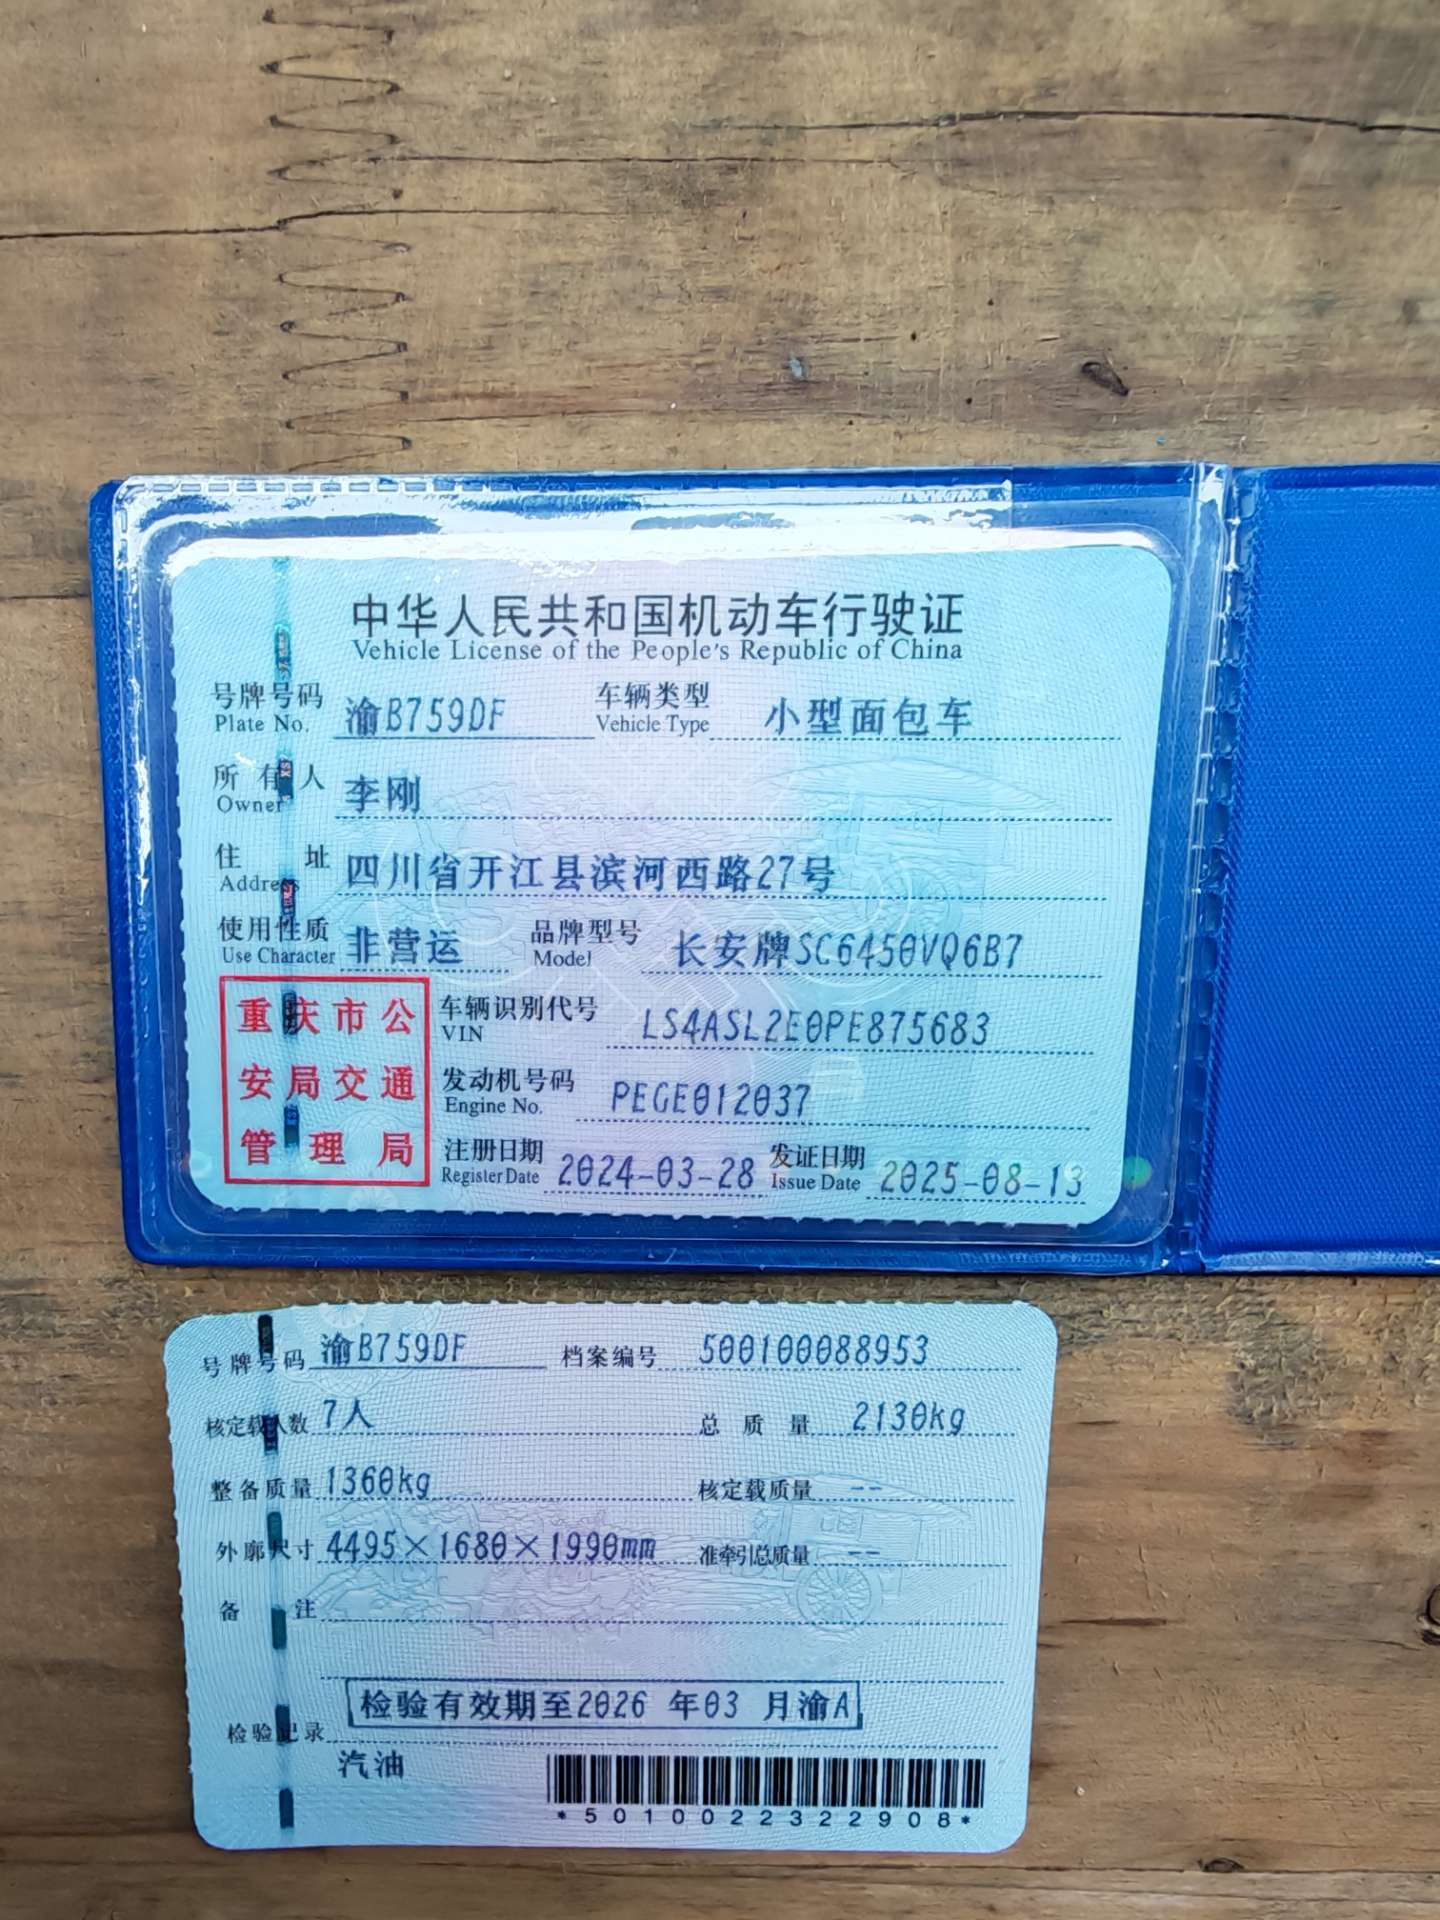 中华人民共和国机动车行驶证
Vehicle License of the People's Republic of China
号牌号码 渝B759DF 车辆类型 小型面包车
Plate No. Vehicle Type
所有人 李刚
Owner
住址 四川省开江县滨河西路27号
Address
使用性质 非营运 品牌型号 长安牌SC6450VQ6B7
Use Character Model
重庆市公
安局交通
管理局
车辆识别代号 LS4ASL2E0PE875683
VIN
发动机号码 PEGE012037
Engine No.
注册日期 2024-03-28 发证日期 2025-08-13
Register Date Issue Date
号牌号码 渝B759DF 档案编号 500100088953
核定载人数 7人 总质量 2130kg
整备质量 1360kg 核定载质量 --
外廓尺寸 4495×1680×1990mm 准牵引总质量 --
备注
检验有效期至2026 年03 月渝A
检验记录
汽油
*5010022322908*